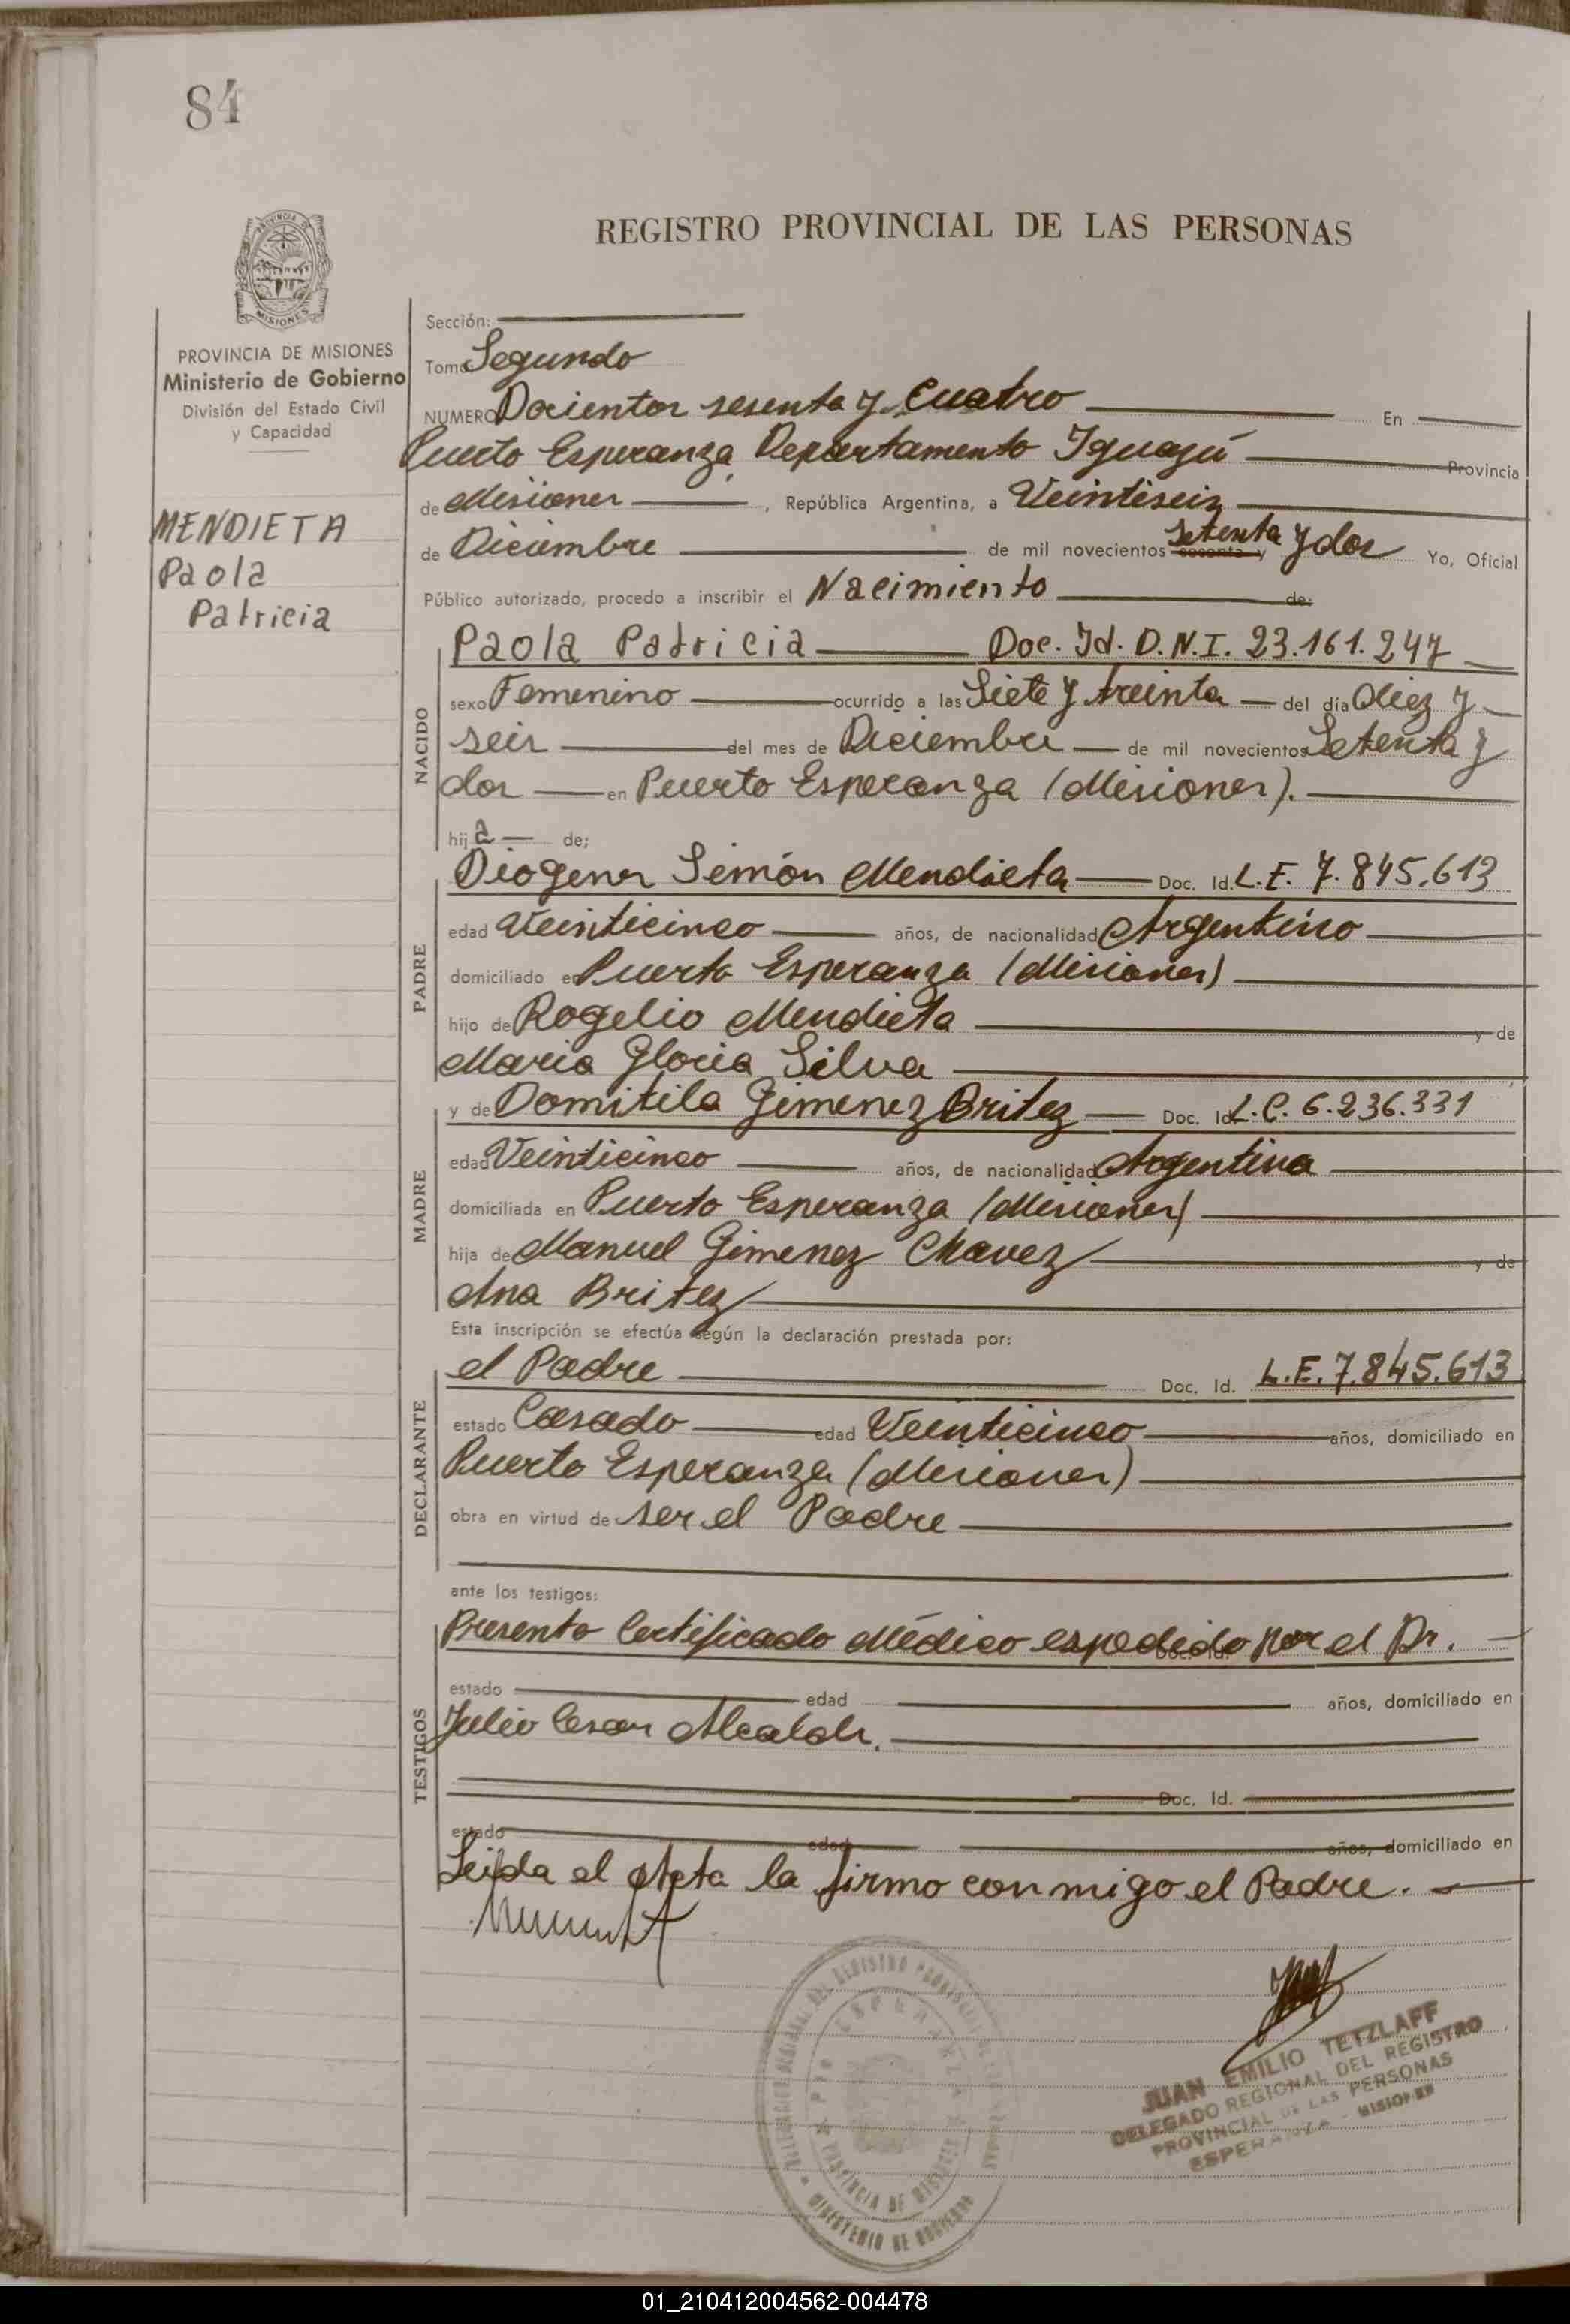 84
REGISTRO PROVINCIAL DE LAS PERSONAS
PROVINCIA DE MISIONES
Ministerio de Gobierno
División del Estado Civil
y Capacidad
MENDIETA
Paola
Patricia
Sección:
Tomo Segundo
NUMERO Docientos sesenta y Cuatro En
Puerto Esperanza Departamento Iguazú Provincia
de Misiones , República Argentina, a Veintiseis
de Diciembre de mil novecientos sesenta y Setenta y dos Yo, Oficial
Público autorizado, procedo a inscribir el Nacimiento de:
NACIDO
Paola Patricia Doc. Id. D.N.I. 23.161.247
sexo Femenino ocurrido a las Siete y treinta del día Diez y
seis del mes de Diciembre de mil novecientos Setenta y
dos en Puerto Esperanza (Misiones).
hija de;
PADRE
Diogenes Simón Mendieta Doc. Id. L.E. 7.845.613
edad Veinticinco años, de nacionalidad Argentino
domiciliado en Puerto Esperanza (Misiones)
hijo de Rogelio Mendieta y de
Maria Gloria Silva
MADRE
y de Domitila Gimenez Britez Doc. Id. L.C. 6.236.331
edad Veinticinco años, de nacionalidad Argentina
domiciliada en Puerto Esperanza (Misiones)
hija de Manuel Gimenez Chavez y de
Ana Britez
Esta inscripción se efectúa según la declaración prestada por:
DECLARANTE
el Padre Doc. Id. L.E. 7.845.613
estado Casado edad Veinticinco años, domiciliado en
Puerto Esperanza (Misiones)
obra en virtud de ser el Padre
ante los testigos:
TESTIGOS
Presento Certificado Médico espedido por el Dr.
Doc. Id.
estado edad años, domiciliado en
Julio Cesar
Doc. Id.
estado edad años, domiciliado en
Leida el Acta la firmo conmigo el Padre.
JUAN EMILIO TETZLAFF
DELEGADO REGIONAL DEL REGISTRO
PROVINCIAL DE LAS PERSONAS
ESPERANZA - MISIONES
PROVINCIA DE MISIONES
MINISTERIO DE GOBIERNO
01_210412004562-004478